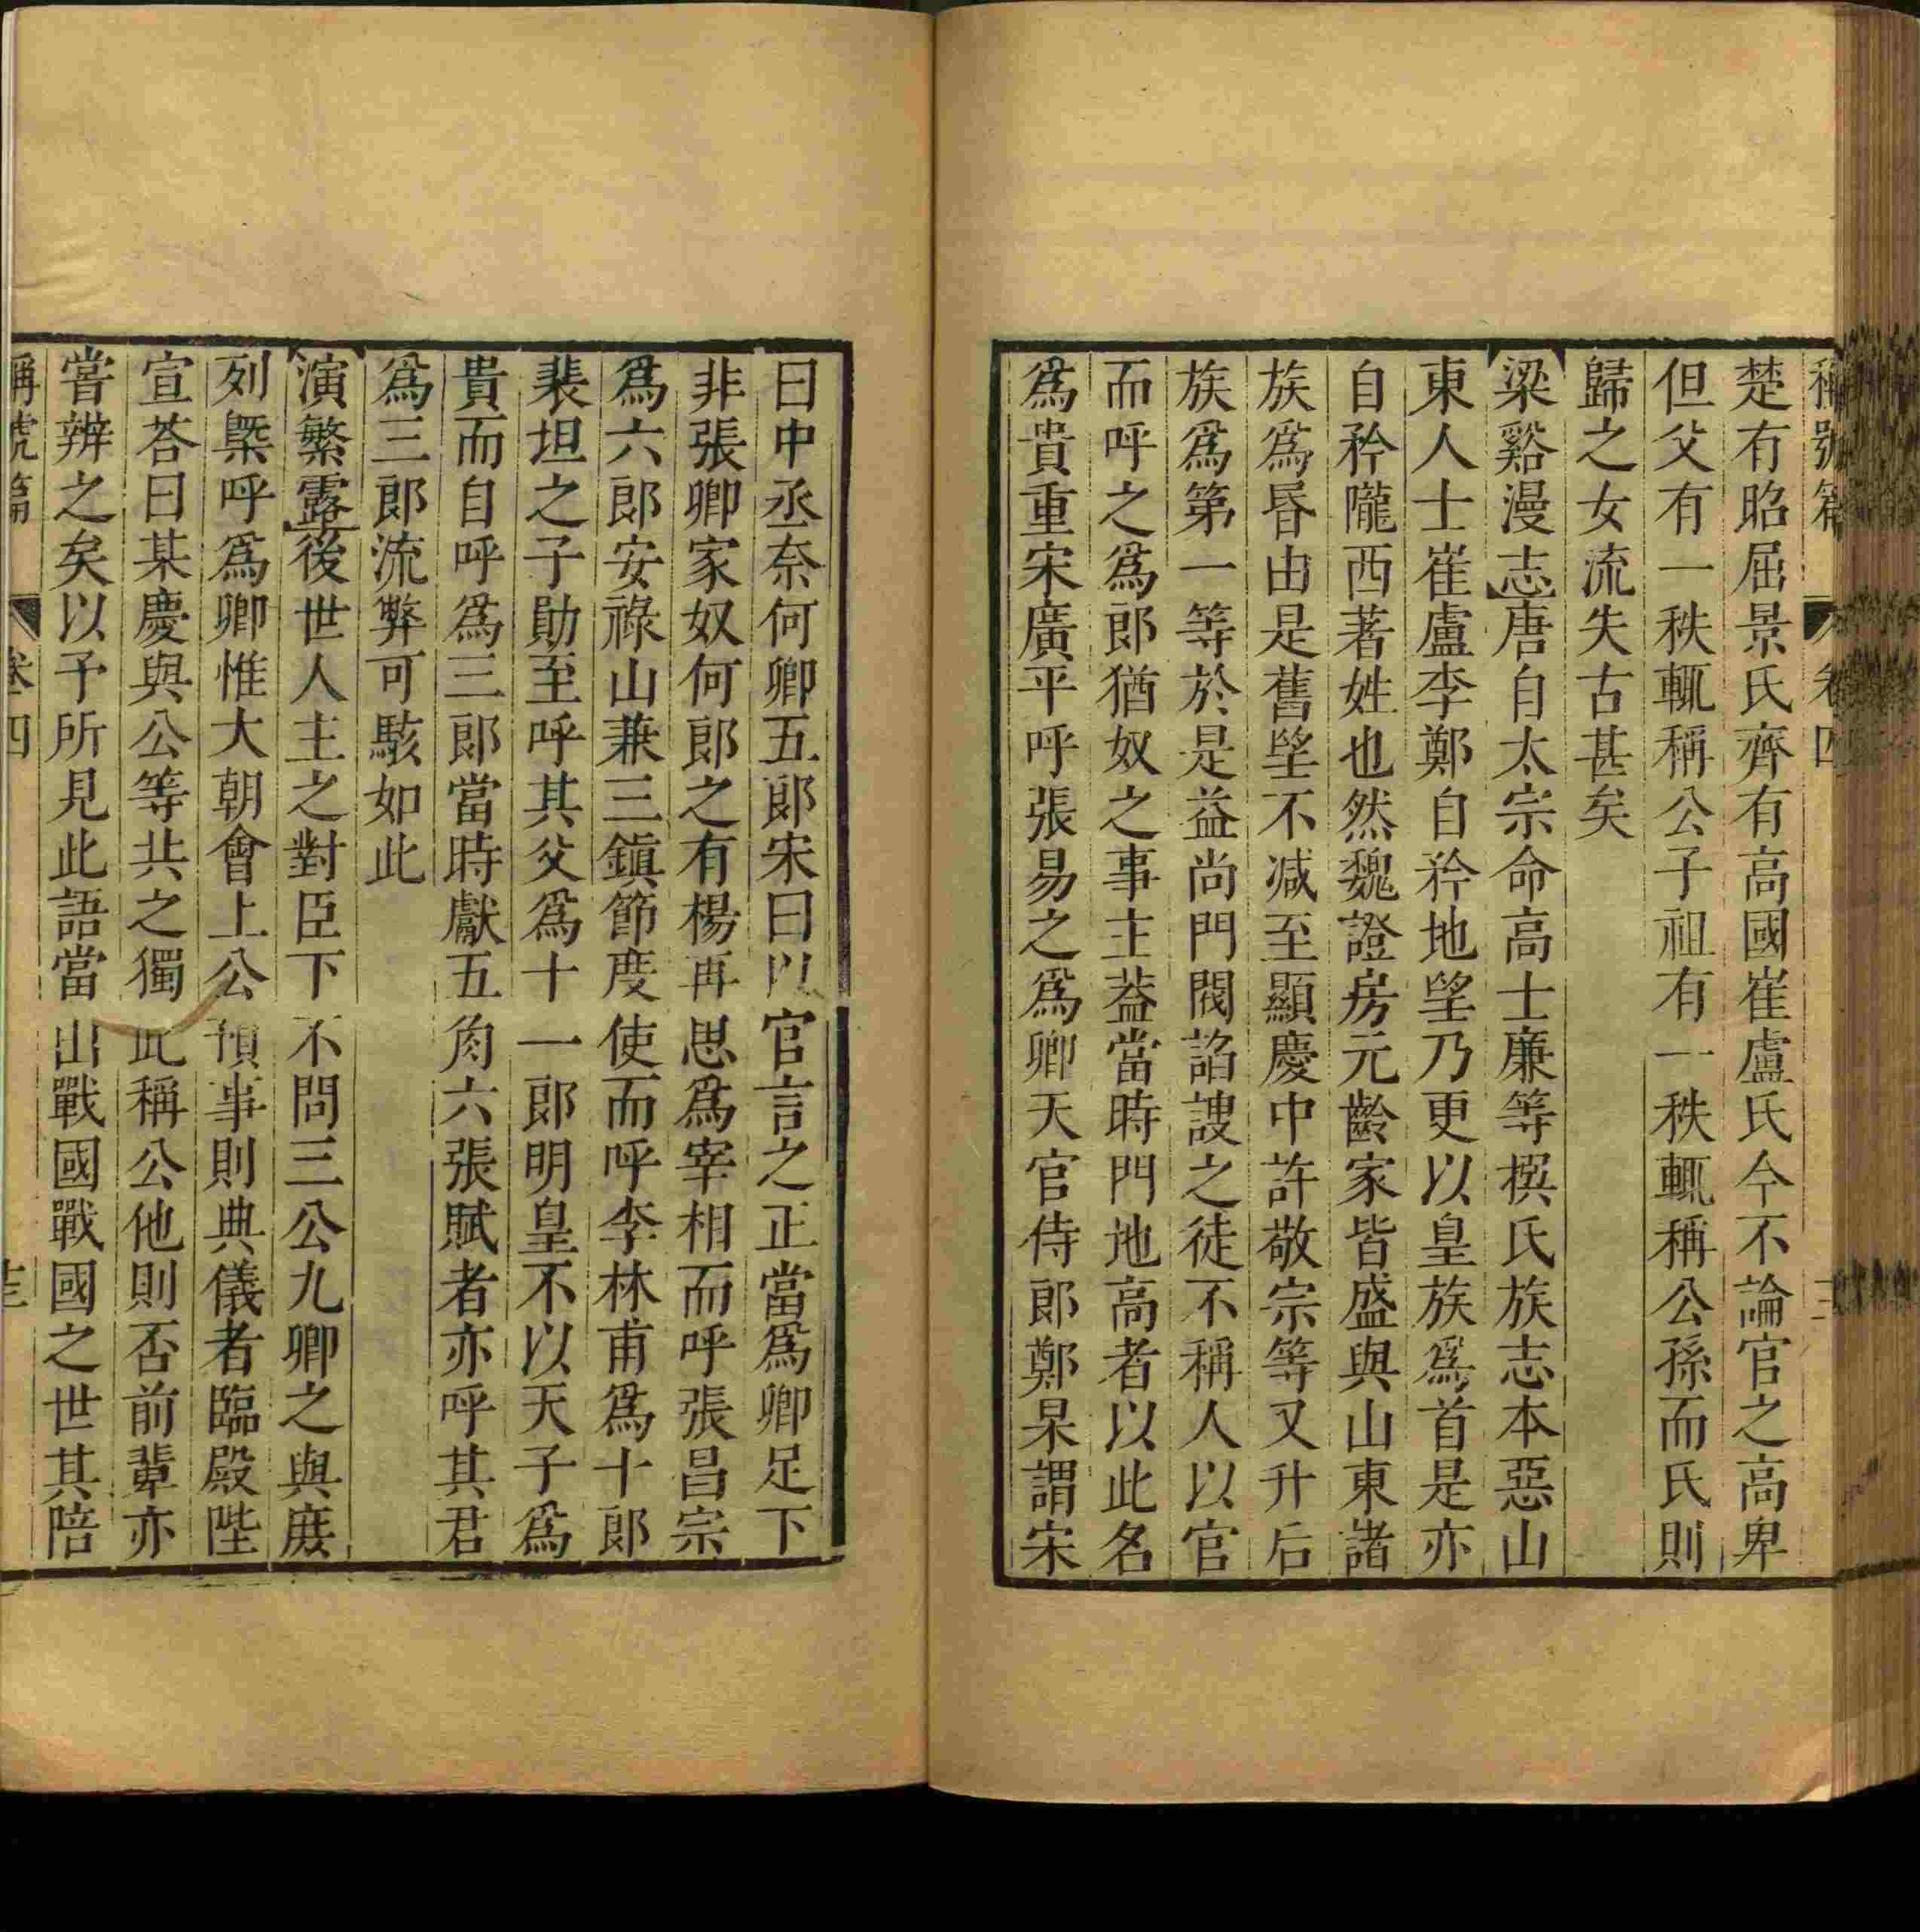 稱號篇 卷四
楚有昭屈景氏齊有高國崔盧氏今不論官之高卑
但父有一秩輒稱公子祖有一秩輒稱公孫而氏則
歸之女流失古甚矣
梁谿漫志唐自太宗命高士廉等撰氏族志本惡山
東人士崔盧李鄭自矜地望乃更以皇族爲首是亦
自矜隴西著姓也然魏證房元齡家皆盛與山東諸
族爲昏由是舊望不减至顯慶中許敬宗等又升后
族爲第一等於是益尚門閥諂諛之徒不稱人以官
而呼之爲郎猶奴之事主葢當時門地高者以此名
爲貴重宋廣平呼張易之爲卿天官侍郎鄭杲謂宋
曰中丞奈何卿五郎宋曰以官言之正當爲卿足下
非張卿家奴何郎之有楊再思爲宰相而呼張昌宗
爲六郎安祿山兼三鎮節度使而呼李林甫爲十郎
裴坦之子勛至呼其父爲十一郎明皇不以天子爲
貴而自呼爲三郎當時獻五角六張賦者亦呼其君
爲三郎流弊可駭如此
演繁露後世人主之對臣下不問三公九卿之與庶
列槩呼爲卿惟大朝會上公預事則典儀者臨殿陛
宣荅曰某慶與公等共之獨此稱公他則否前輩亦
嘗辨之矣以予所見此語當出戰國戰國之世其陪
稱號篇 卷四